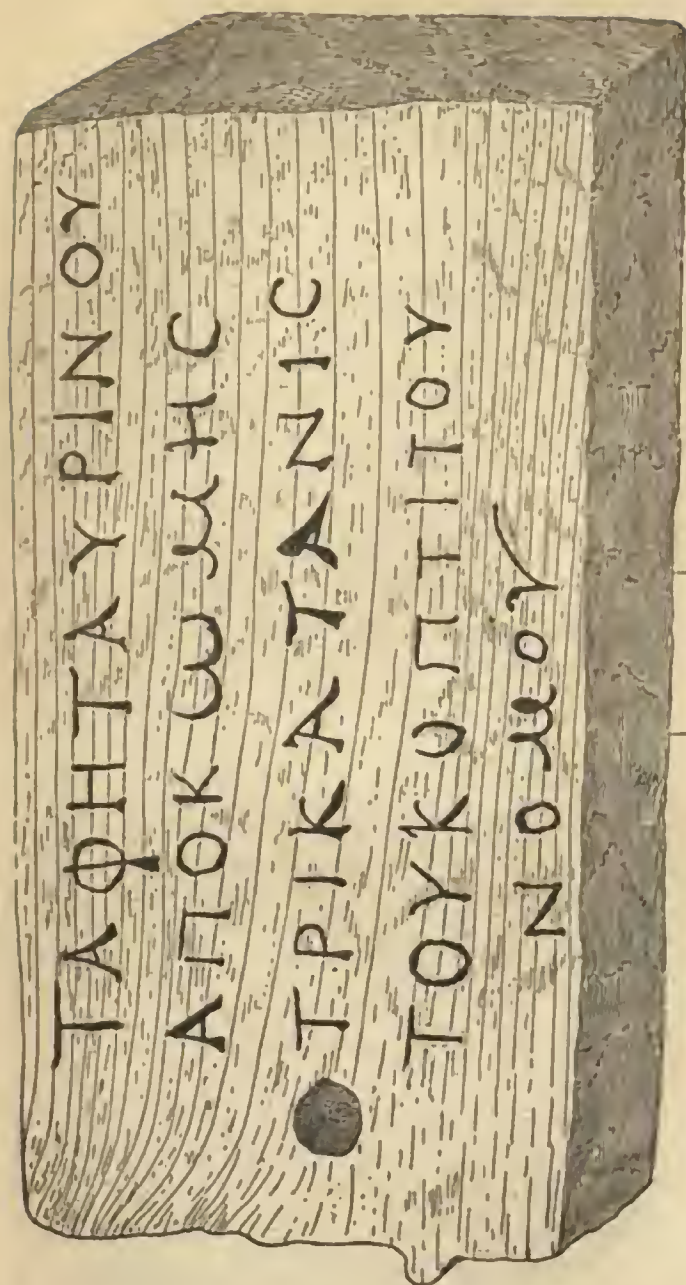 ΤΑΦΗΤΑΥΡΙΝΟΥ
ΑΠΟΚωμΗC
ΤΡΙΚΑΤΑΝΙC
ΤΟΥΚΟΠΤΙΤΟΥ
ΝΟμΟΥ